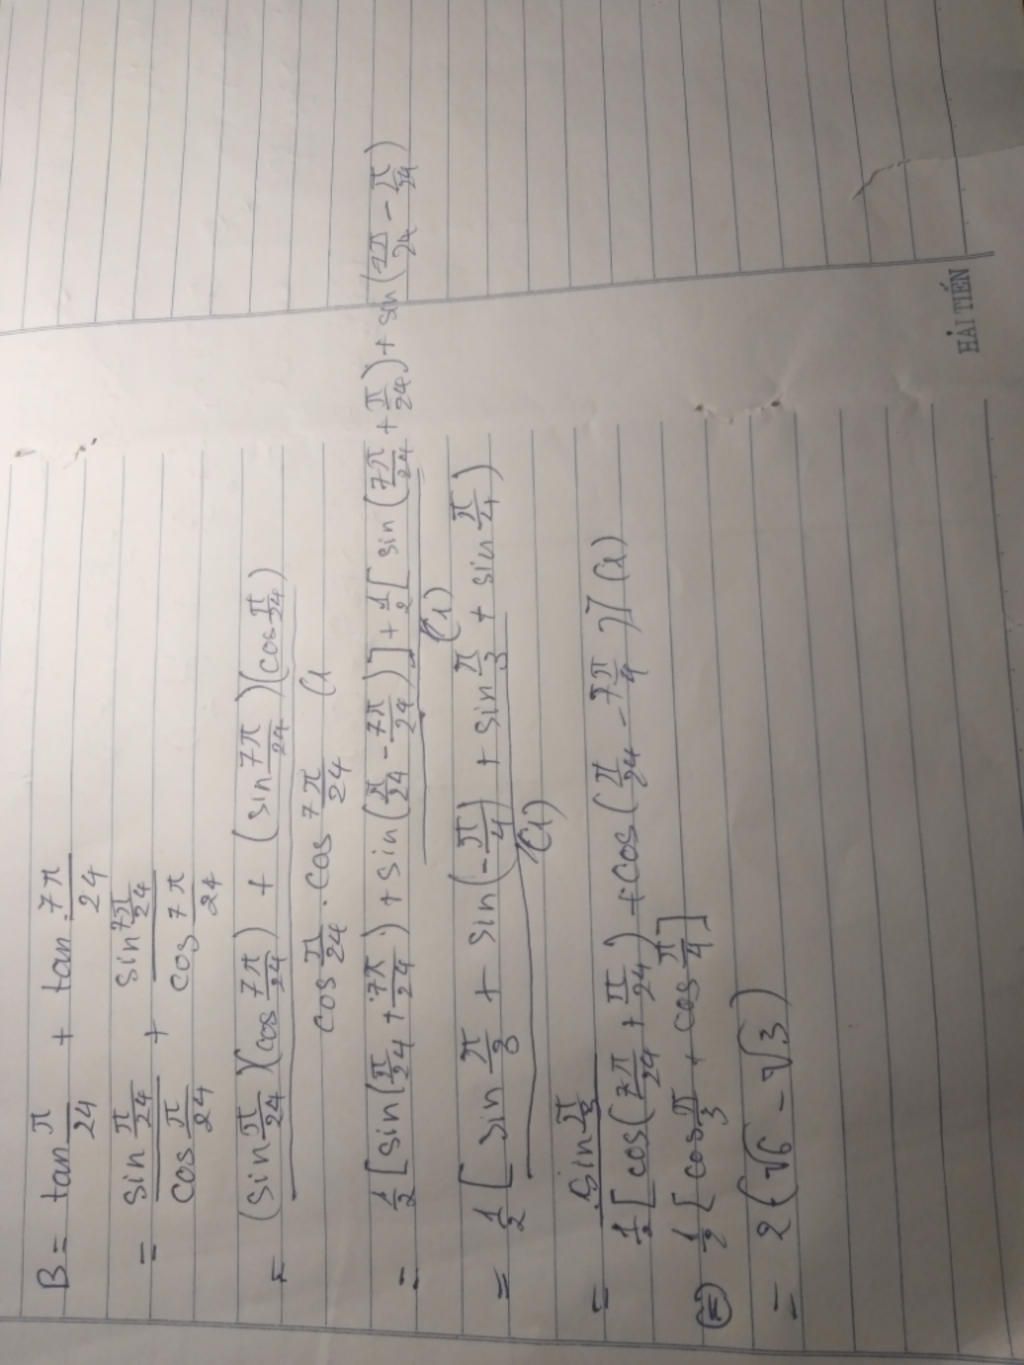 B = tan π/24 + tan 7π/24
= sin π/24 / cos π/24 + sin 7π/24 / cos 7π/24
= (sin π/24)(cos 7π/24) + (sin 7π/24)(cos π/24)
cos π/24 . cos 7π/24 (1
= 1/2 [sin(π/24 + 7π/24) + sin(π/24 - 7π/24)] + 1/2 [sin(7π/24 + π/24) + sin(7π/24 - π/24)
(1)
= 1/2 [sin π/3 + sin(-π/4) + sin π/3 + sin π/4)
(1)
= sin π/3
1/2 [cos(7π/24 + π/24) + cos(π/24 - 7π/4)] (1)
(=) 1/2 [cos π/3 + cos π/4]
= 2(√6 - √3)
HẢI TIẾN